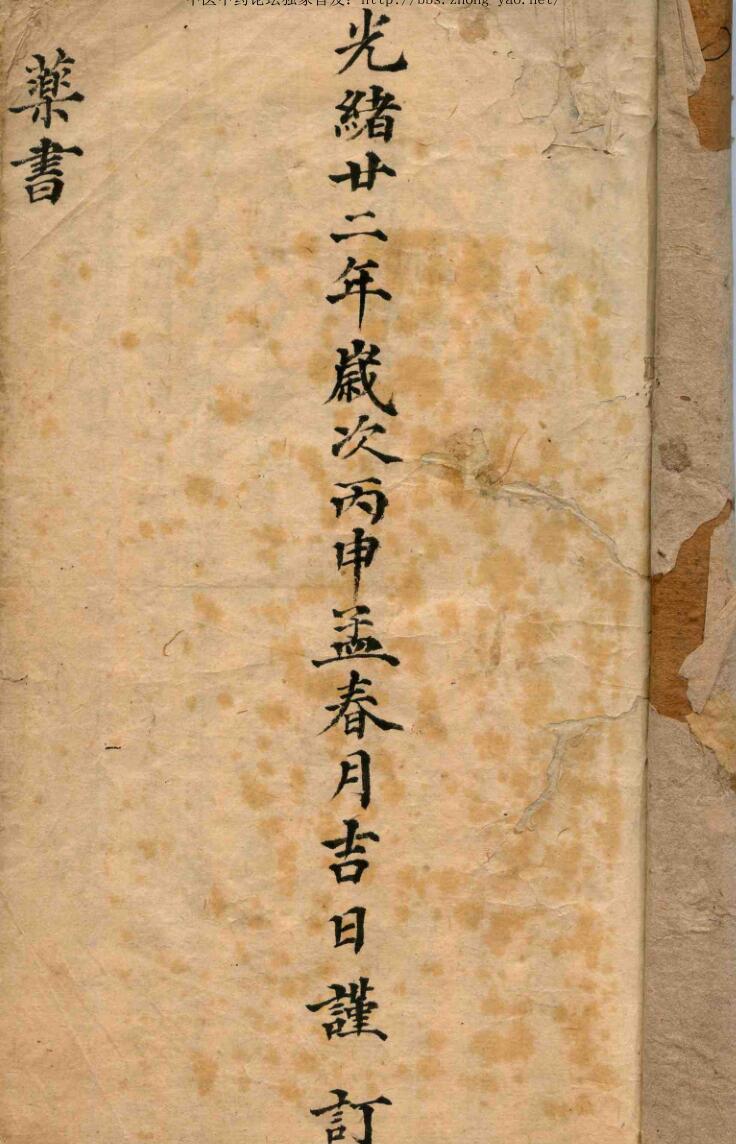 中医中药论坛独家首发：http://bbs.zhong-yao.net/
光緒廿二年歲次丙申孟春月吉日謹訂
藥書